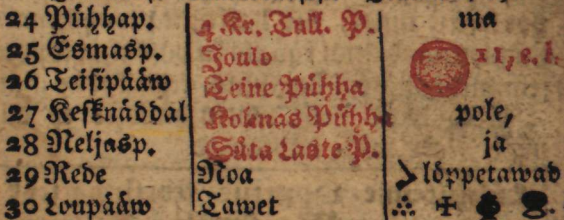 24 Pühhap. 4 Kr. Tull. P. ma
25 Esmasp. Joulo 11, e. l.
26 Teisipääw Teine Pühha
27 Kesknäddal Kolmas Pühha pole,
28 Neljasp. Süta Laste P. ja
29 Rede Noa löppetawad
30 Loupääw Tawet